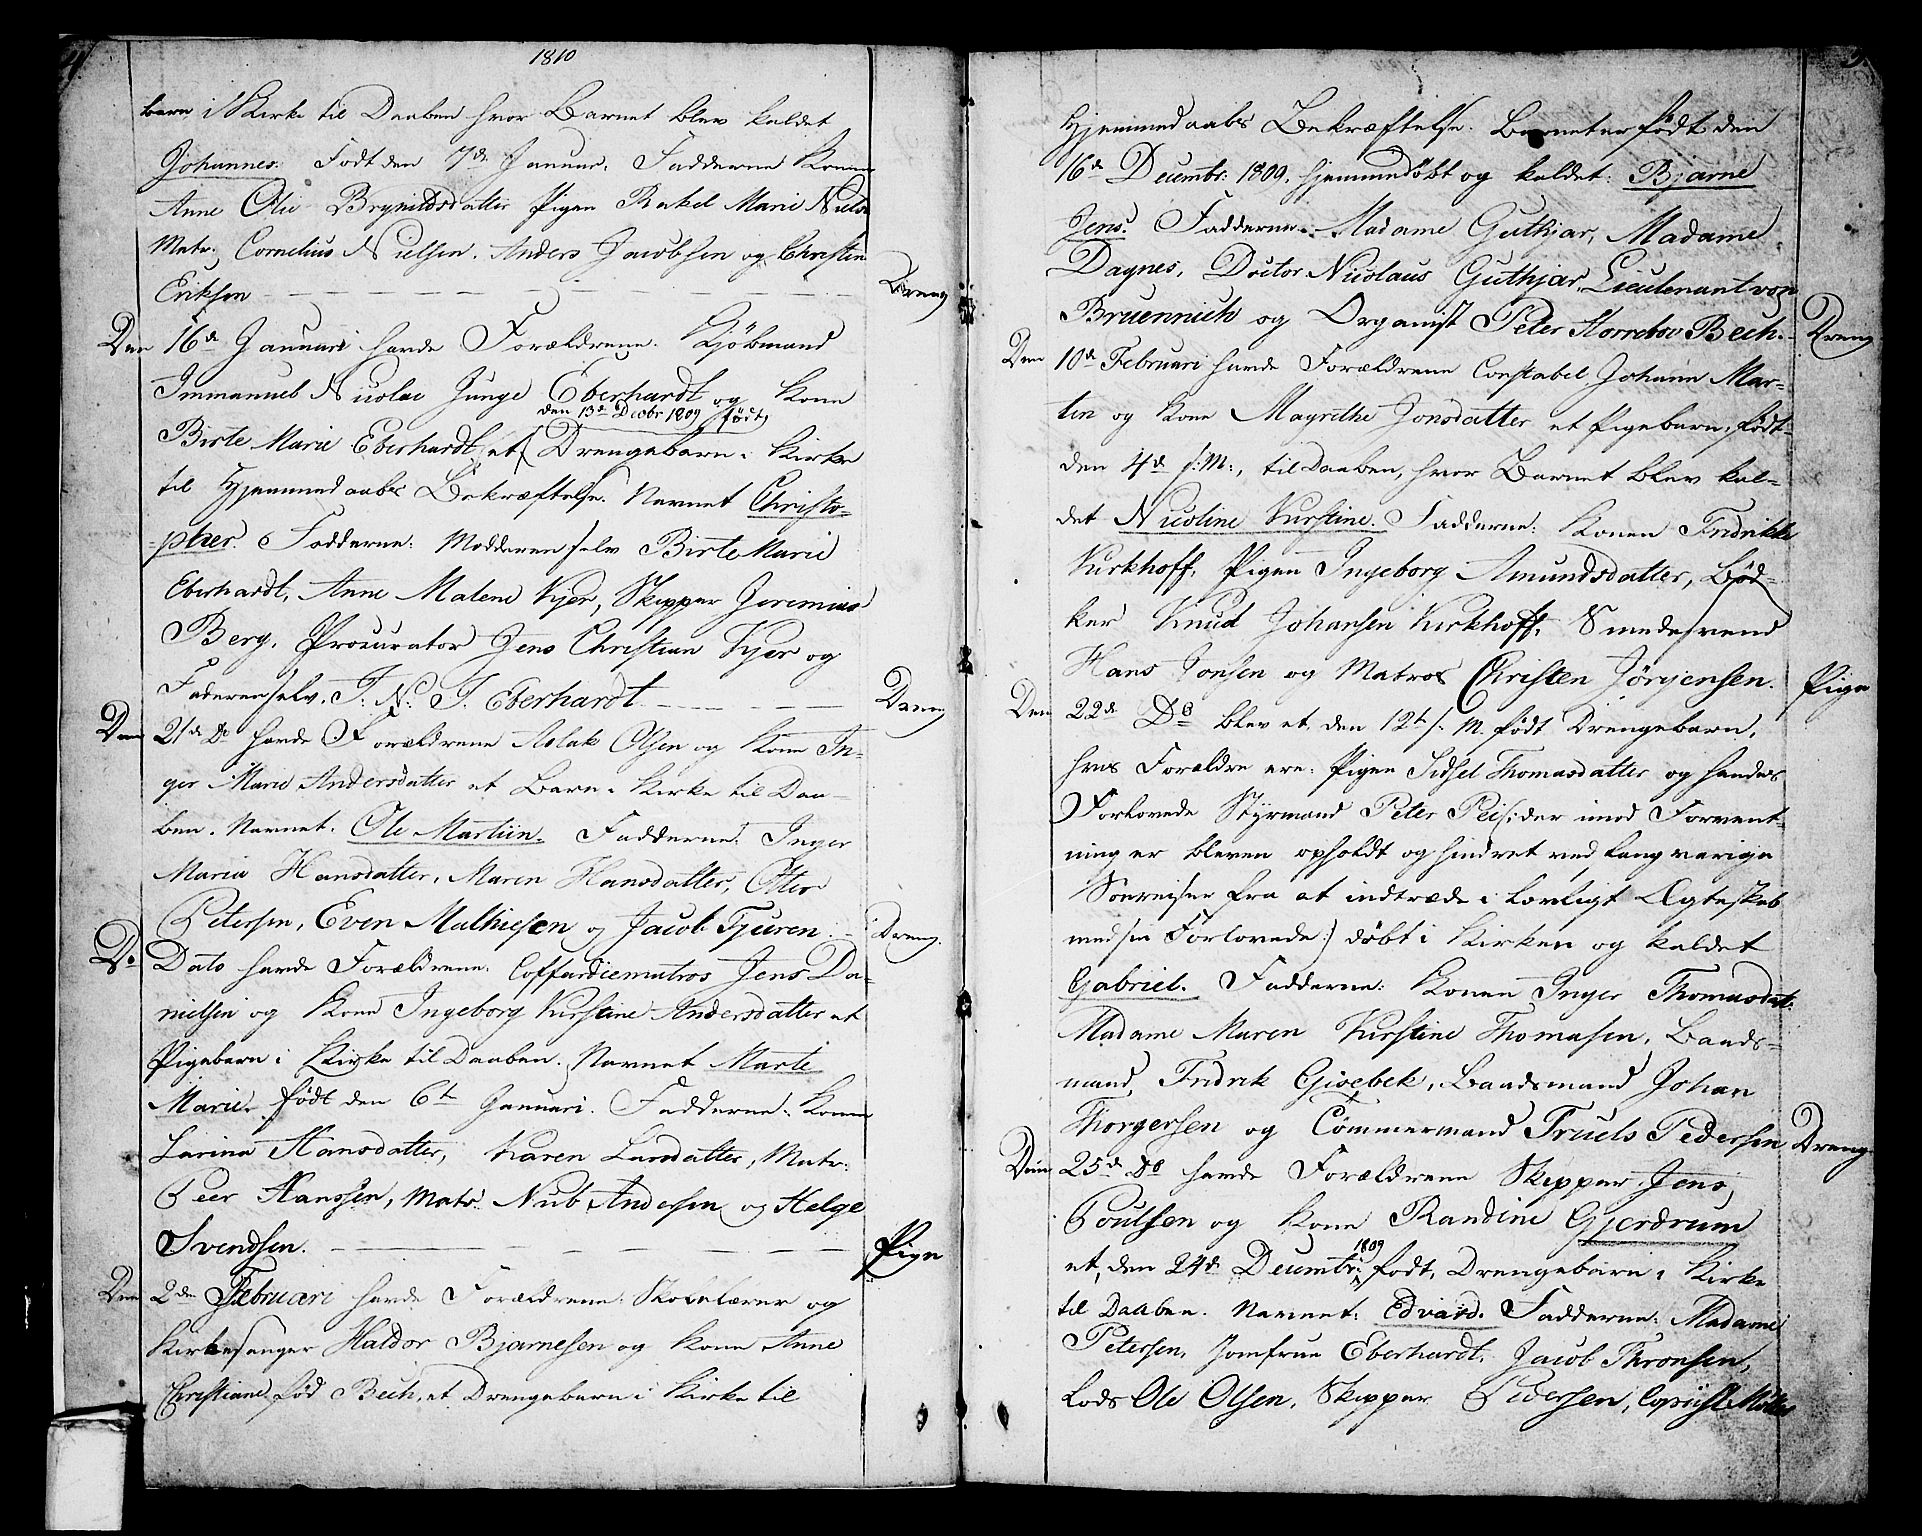 4
1810
barn i Kirke til Daaben hvor Barnet blev kaldet
Johannes. Født den 7de Januar. Fadderne Konen
Anne Olie Brynildsdatter Pigen Rakel Marie Niels
Matr: Cornelius Nielsen. Anders Jacobsen og Christen
Eriksen
Dreng
Den 16de Januari havde Forældrene Kjöbmand
Immanuel Nicolai Junge Eberhardt og Kone
den 13de Decbr 1809 født
Birte Marie Eberhardt, et Drengebarn i Kirke
til Hjemmedaabs Bekræftelse. Navnet Christo-
-pher. Fadderne: Modderen selv Birte Marie
Eberhardt, Anne Malene Kjer, Skipper Jeremias
Berg, Procurator Jens Christian Kjer og
Faderen selv, I: N: J. Eberhardt
Dreng
Den 21de Do havde Forældrene Aslak Olsen og Kone In-
ger Marie Andersdatter et Barn i Kirke til Daa-
ben. Navnet: Ole Martiin. Fadderne: Inger
Maria Hansdatter, Maren Hansdatter, Otter
Petersen, Even Mathiesen og Jacob Tjuren.
Dreng.
Do Dato havde Forældrene: Coffardiematros Jens Da-
nielsen og Kone Ingeborg Kirstine Andersdatter et
Pigebarn i Kirke til Daaben. Navnet Marte
Marie. født den 6te Januari. Fadderne: Konen
Larina Hansdatter, Karen Larsdatter, Matr:
Peer Hanssen, Matr: Nub Andersen og Helge
Svendsen.
Pige
Den 2den Februari havde Forældrene: Skolelærer og
Kirkesanger Haldor Bjarnesen og Kone Anne
Christiane fød Bech, et Drengebarn i Kirke til
5.
Hjemmedaabs Bekræftelse. Barnet er født den
16de Decembr: 1809, hjemmedöbt og kaldet: Bjarne
Jens. Fadderne: Madame Guthjar, Madame
Dagnes, Doctor Nicolaus Guthjar, Lieutenant von
Bruennich og Organist Peter Horrebov Bech.
Dreng
Den 10de Februari havde Forældrene Constabel Johann Mar-
tin og Kone Magrethe Jonsdatter et Pigebarn, født
den 4de s: M:, til Daaben, hvor Barnet blev kal-
det Nicoline Kirstine. Fadderne: Konen Fredrikke
Kirkhoff, Pigen Ingeborg Amundsdatter, Bød-
ker Knud Johansen Kirkhoff, Smedesvend
Hans Jonsen og Matros Christen Jörgensen.
Pige
Den 22de Do blev et den 12te s. M. født Drengebarn,
hvis Forældre ere: Pigen Sidsel Thomasdatter og hendes
Forlovede Styrmand Peter Pei (: der imod Forvent-
ning er bleven opholdt og hindret ved langvarige
Söereiser fra at indtræde i lovligt Ægteskab
med sin Forlovede :) döbt i Kirken og kaldet
Gabriel. Fadderne: Konen Inger Thomasdat.
Madame Maren Kirstine Thomasen, Baads-
mand Fredrik Gisebek, Baadsmand Johan
Thorgersen og Tømmermand Truels Pedersen
Dreng
Den 25de Do havde Forældrene Skipper Jens
Poulsen og Kone Randine Gjerdrum
1809
et, den 24de Decembr: født, Drengebarn i Kirke
til Daaben. Navnet: Edvard. Fadderne: Madame
Petersen, Jomfrue Eberhardt, Jacob Thronsen,
Lods Ole Olsen, Skipper Pedersen, Copiist Möller